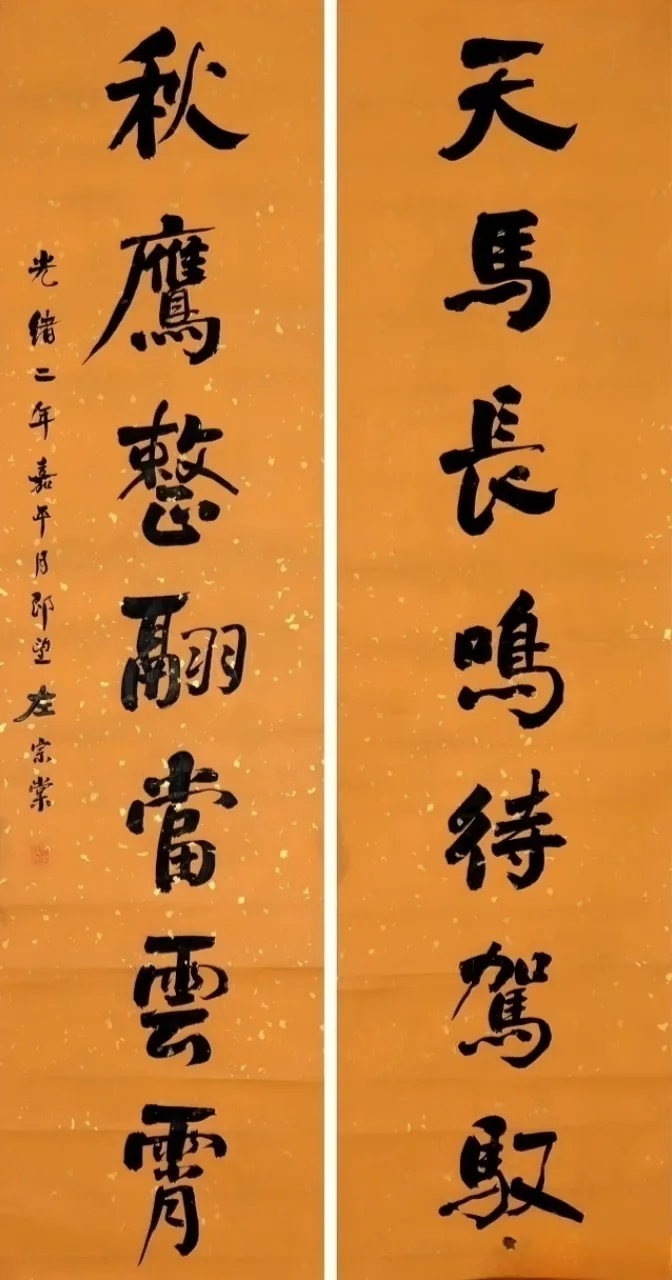 天馬長鳴待駕馭
秋鷹整翮當雲霄
光緒二年嘉平月既望左宗棠